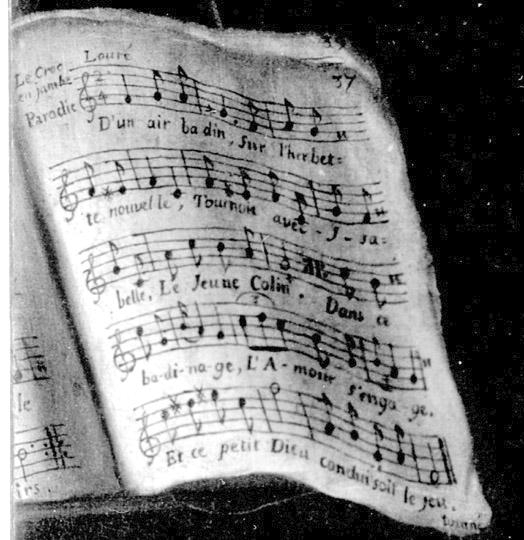 37
Louré
Le Croc
en jambe
2
4
Parodie
D'un air badin, sur l'herbet=
te nouvelle, Tournoit avec-I-sa=
belle, Le Jeune Colin. Dans ce
3
ba-di-na-ge, L'A-mour s'enga-ge.
Et ce petit Dieu conduisoit le jeu.
le
irs.